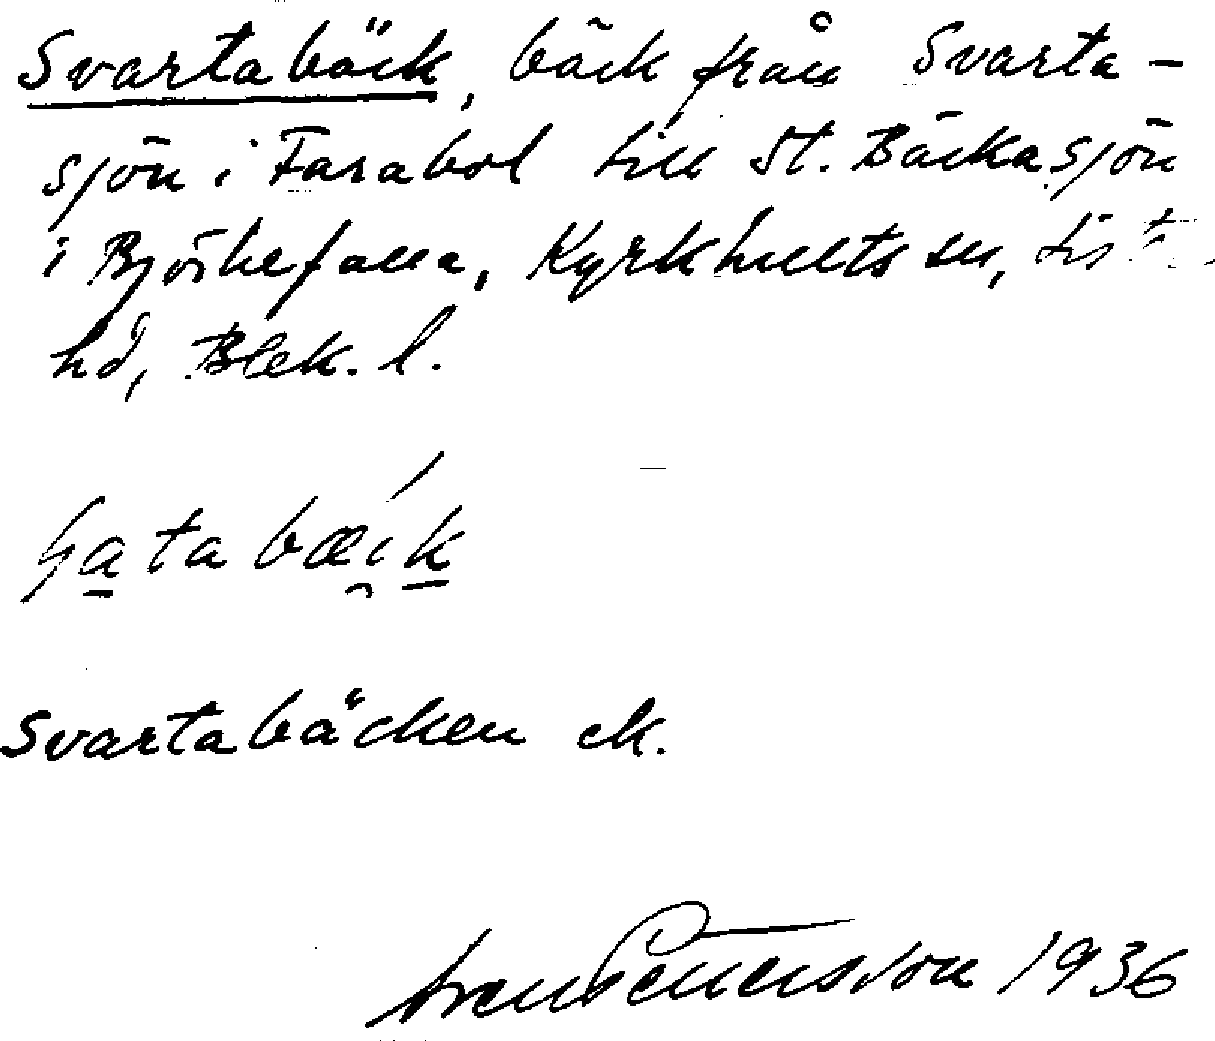 Svartabäck, bäck från Svarta-
sjön i Farabol till St. Bäckasjön
i Björkefalla, Kyrkhults sn, List
hd, Blek. l.
Svartabäcken ek.
Sven Pettersson 1936